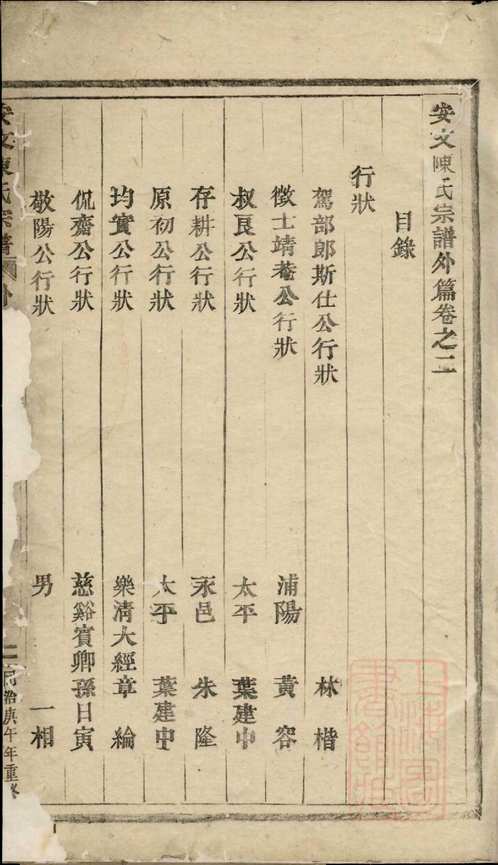 安文陳氏宗譜外篇卷之二
目錄
行狀
駕部郎斯仕公行狀 林楷
徵士靖菴公行狀 浦陽 黃容
叔良公行狀 太平 葉建中
存耕公行狀 永邑 朱隆
原初公行狀 太平 葉建中
均實公行狀 樂清大經章綸
侃齋公行狀 慈谿賓卿孫日寅
敬陽公行狀 男 一相
安文陳氏宗譜 外 同治庚午年重修